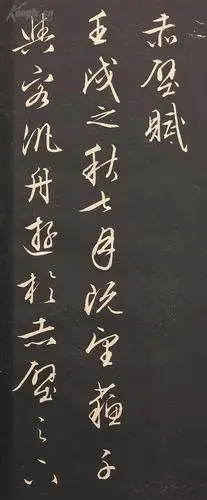 赤壁賦
壬戌之秋七月既望蘇子
與客汎舟遊於赤壁之下